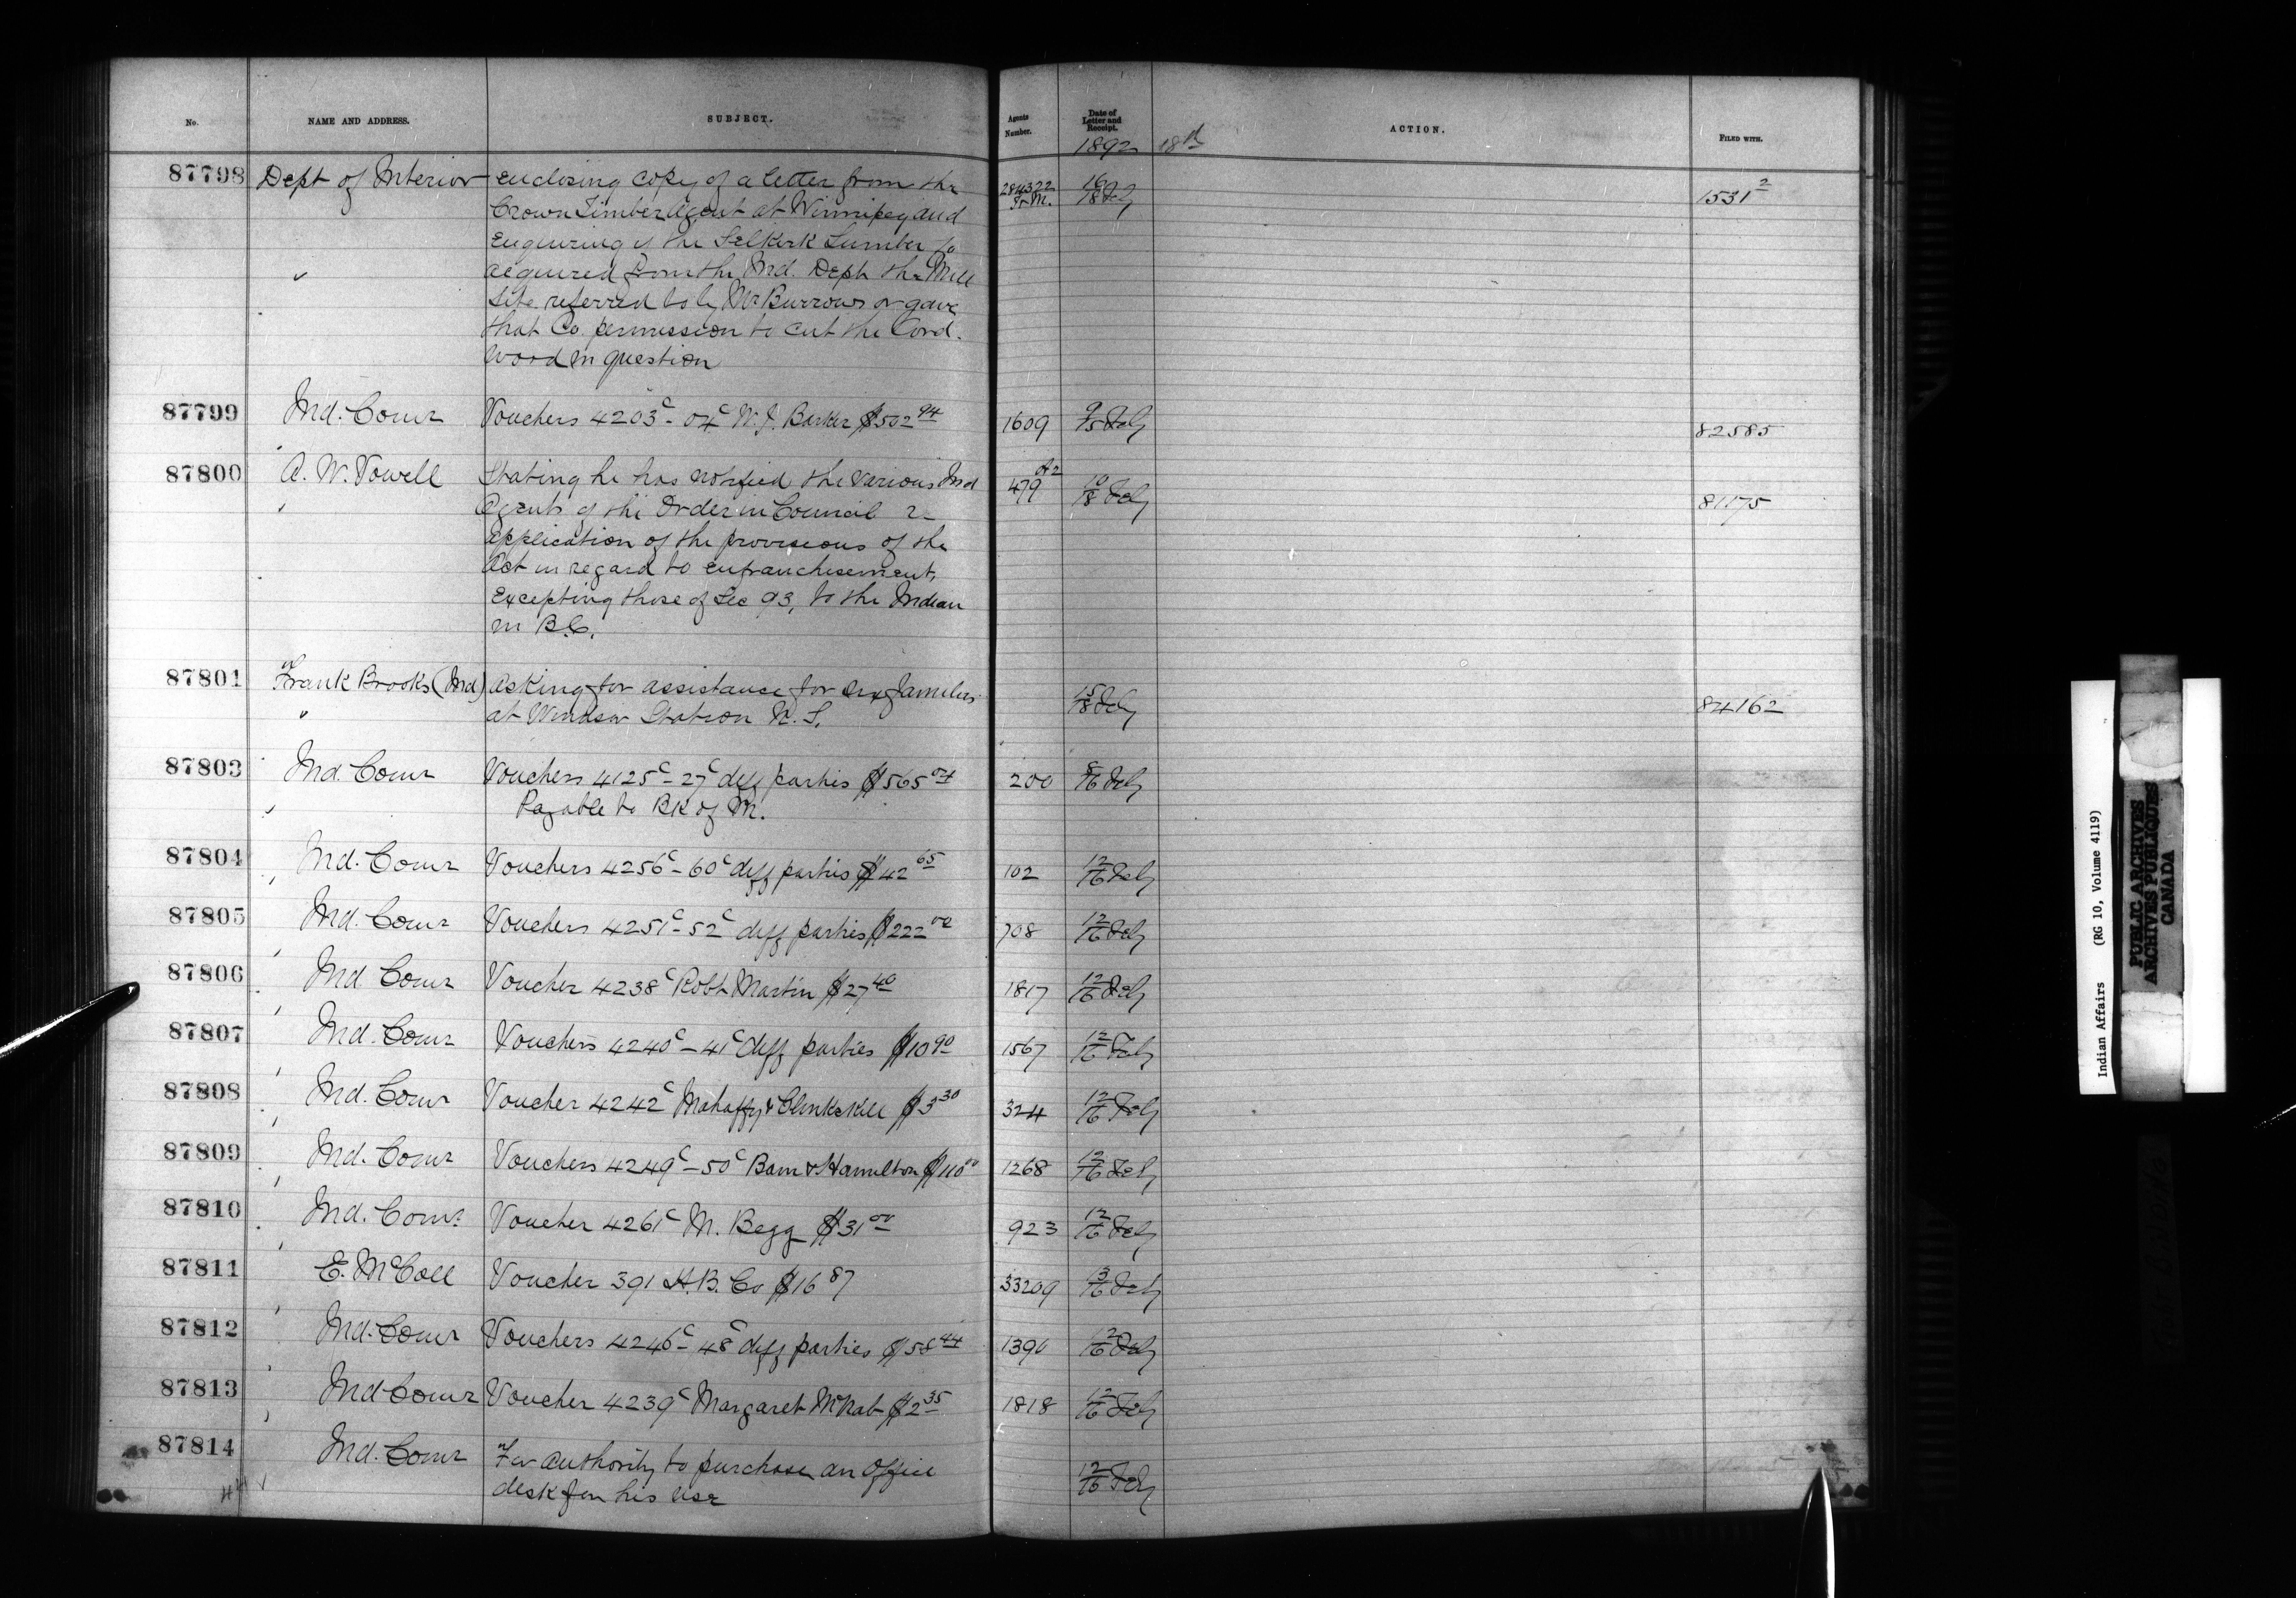 No. NAME AND ADDRESS. SUBJECT. Agents Number. Date of Letter and Receipt. ACTION. FILED WITH.
1892 18th
87798 Dept of Interior enclosing copy of a letter from the 284322 Tr M. 16/18 Feby 1531²
Crown Timber Agent at Winnipeg and
Enquiring if the Selkirk Lumber Co
acquired from the Ind. Dept the Mill
Site referred to by Mr Burrows or gave
that Co. permission to cut the Cord.
wood in question
87799 Ind. Comr Vouchers 4203c - 04c W. J. Barker $502 94 1609 9/15 Feby 82585
87800 A. W. Vowell Stating he has notified the various Ind 479 A2 10/18 Feby 81175
Agents of the Order in Council re
application of the provisions of the
Act in regard to enfranchisement,
Excepting those of Sec 93, to the Indian
in B.C.
87801 Frank Brooks (Ind) Asking for assistance for families 15/18 Feby 84162
at Windsor Station N. S.
87803 Ind. Comr Vouchers 4125c - 27c diff parties $565 04 200 8/16 Feby
Payable to Bk of M.
87804 Ind. Comr Vouchers 4256c - 60c diff parties $42 65 102 12/16 Feby
87805 Ind. Comr Vouchers 4251c - 52c diff parties $222 00 708 12/16 Feby
87806 Ind Comr Voucher 4238c Robt Martin $27 40 1817 12/16 Feby
87807 Ind. Comr Vouchers 4240c - 41c diff parties $10 90 1567 12/16 Feby
87808 Ind. Comr Voucher 4242c Mahaffy & Clinkskill $3 30 324 12/16 Feby
87809 Ind. Comr Vouchers 4249c - 50c Bain & Hamilton $110 00 1268 12/16 Feby
87810 Ind. Comr Voucher 4261c M. Begg $31 00 923 12/16 Feby
87811 E. McColl Voucher 391 H.B. Co $16 87 33209 13/16 Feby
87812 Ind. Comr Vouchers 4246c - 48c diff parties $58 44 1390 12/16 Feby
87813 Ind Comr Voucher 4239c Margaret McNab $2 35 1818 12/16 Feby
87814 Ind. Comr For authority to purchase an Office 12/16 Feby
desk for his use
Indian Affairs (RG 10, Volume 4119)
PUBLIC ARCHIVES
ARCHIVES PUBLIQUES
CANADA